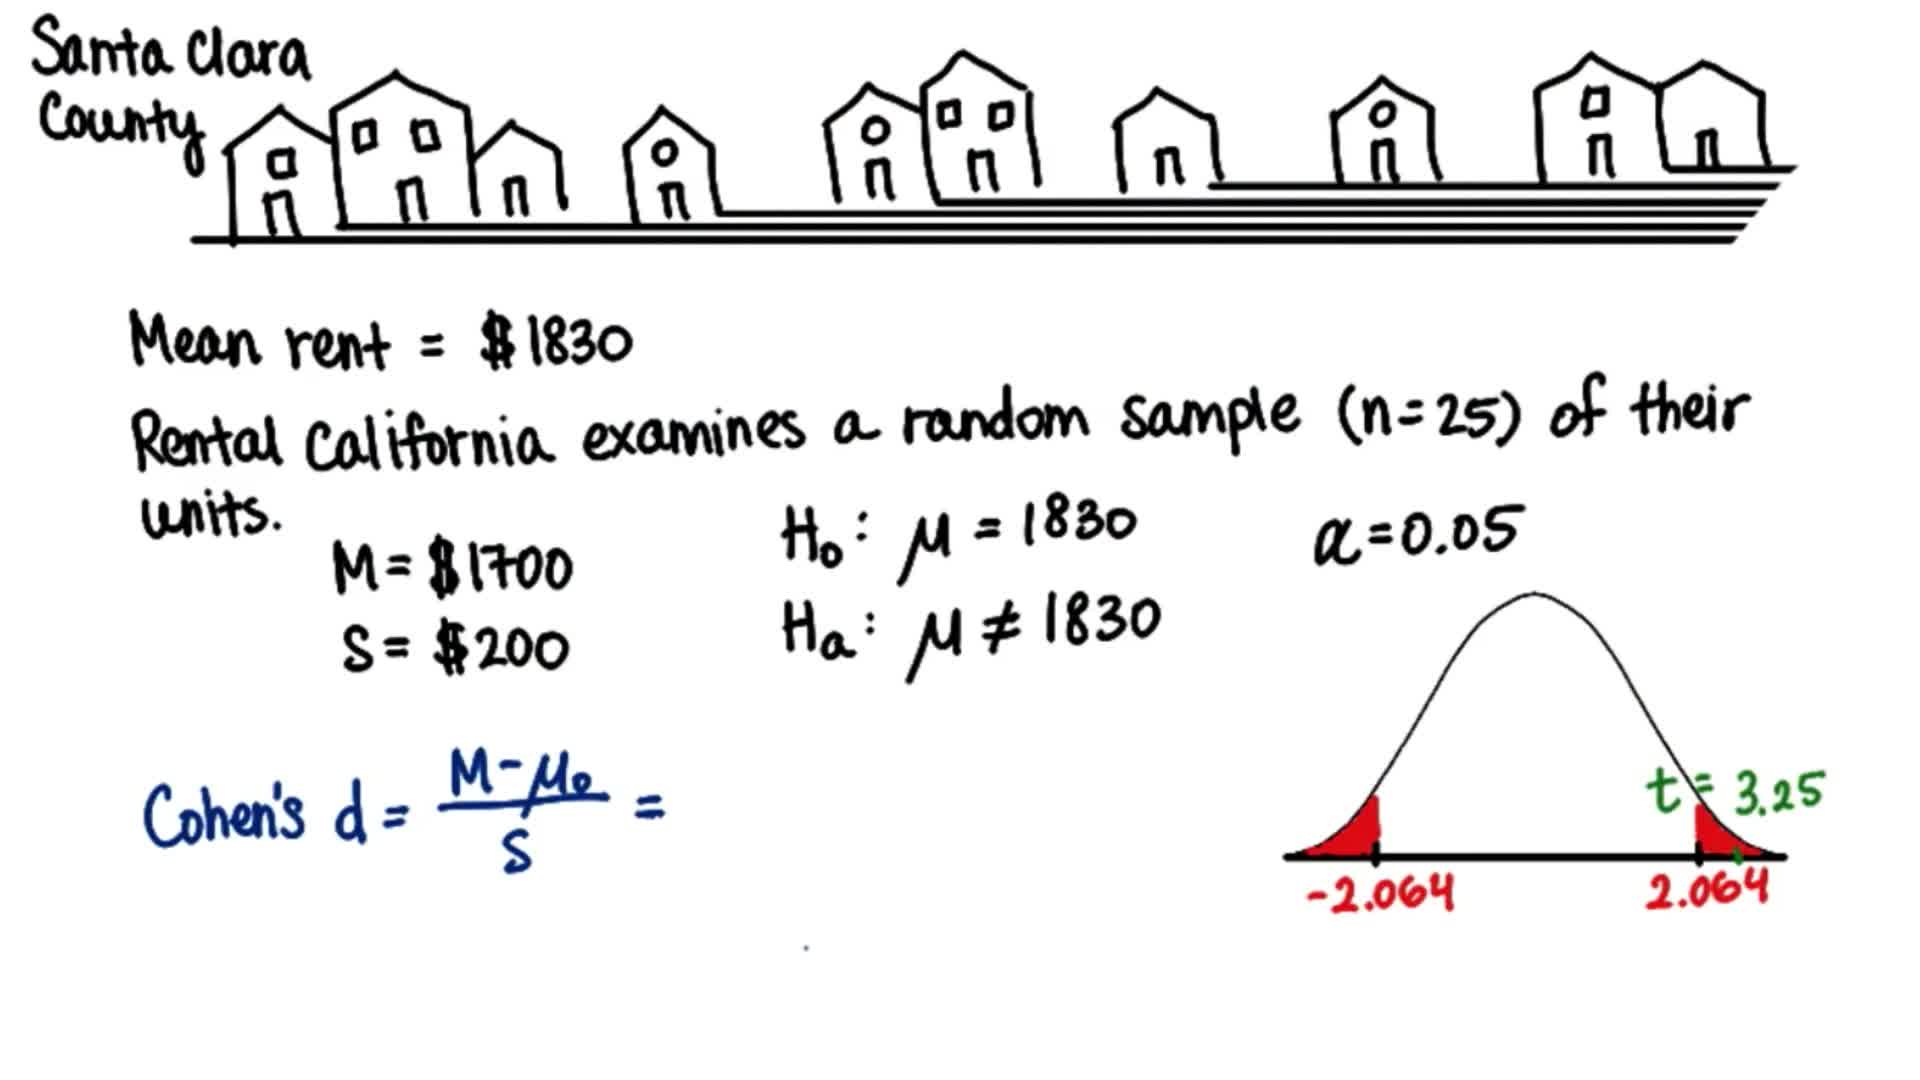 Santa Clara
County
Mean rent = $1830
Rental California examines a random sample (n=25) of their
units.
M = $1700
S = $200
H₀: μ = 1830
Hₐ: μ ≠ 1830
α = 0.05
t = 3.25
-2.064
2.064
Cohen's d = M - μ₀ / S =